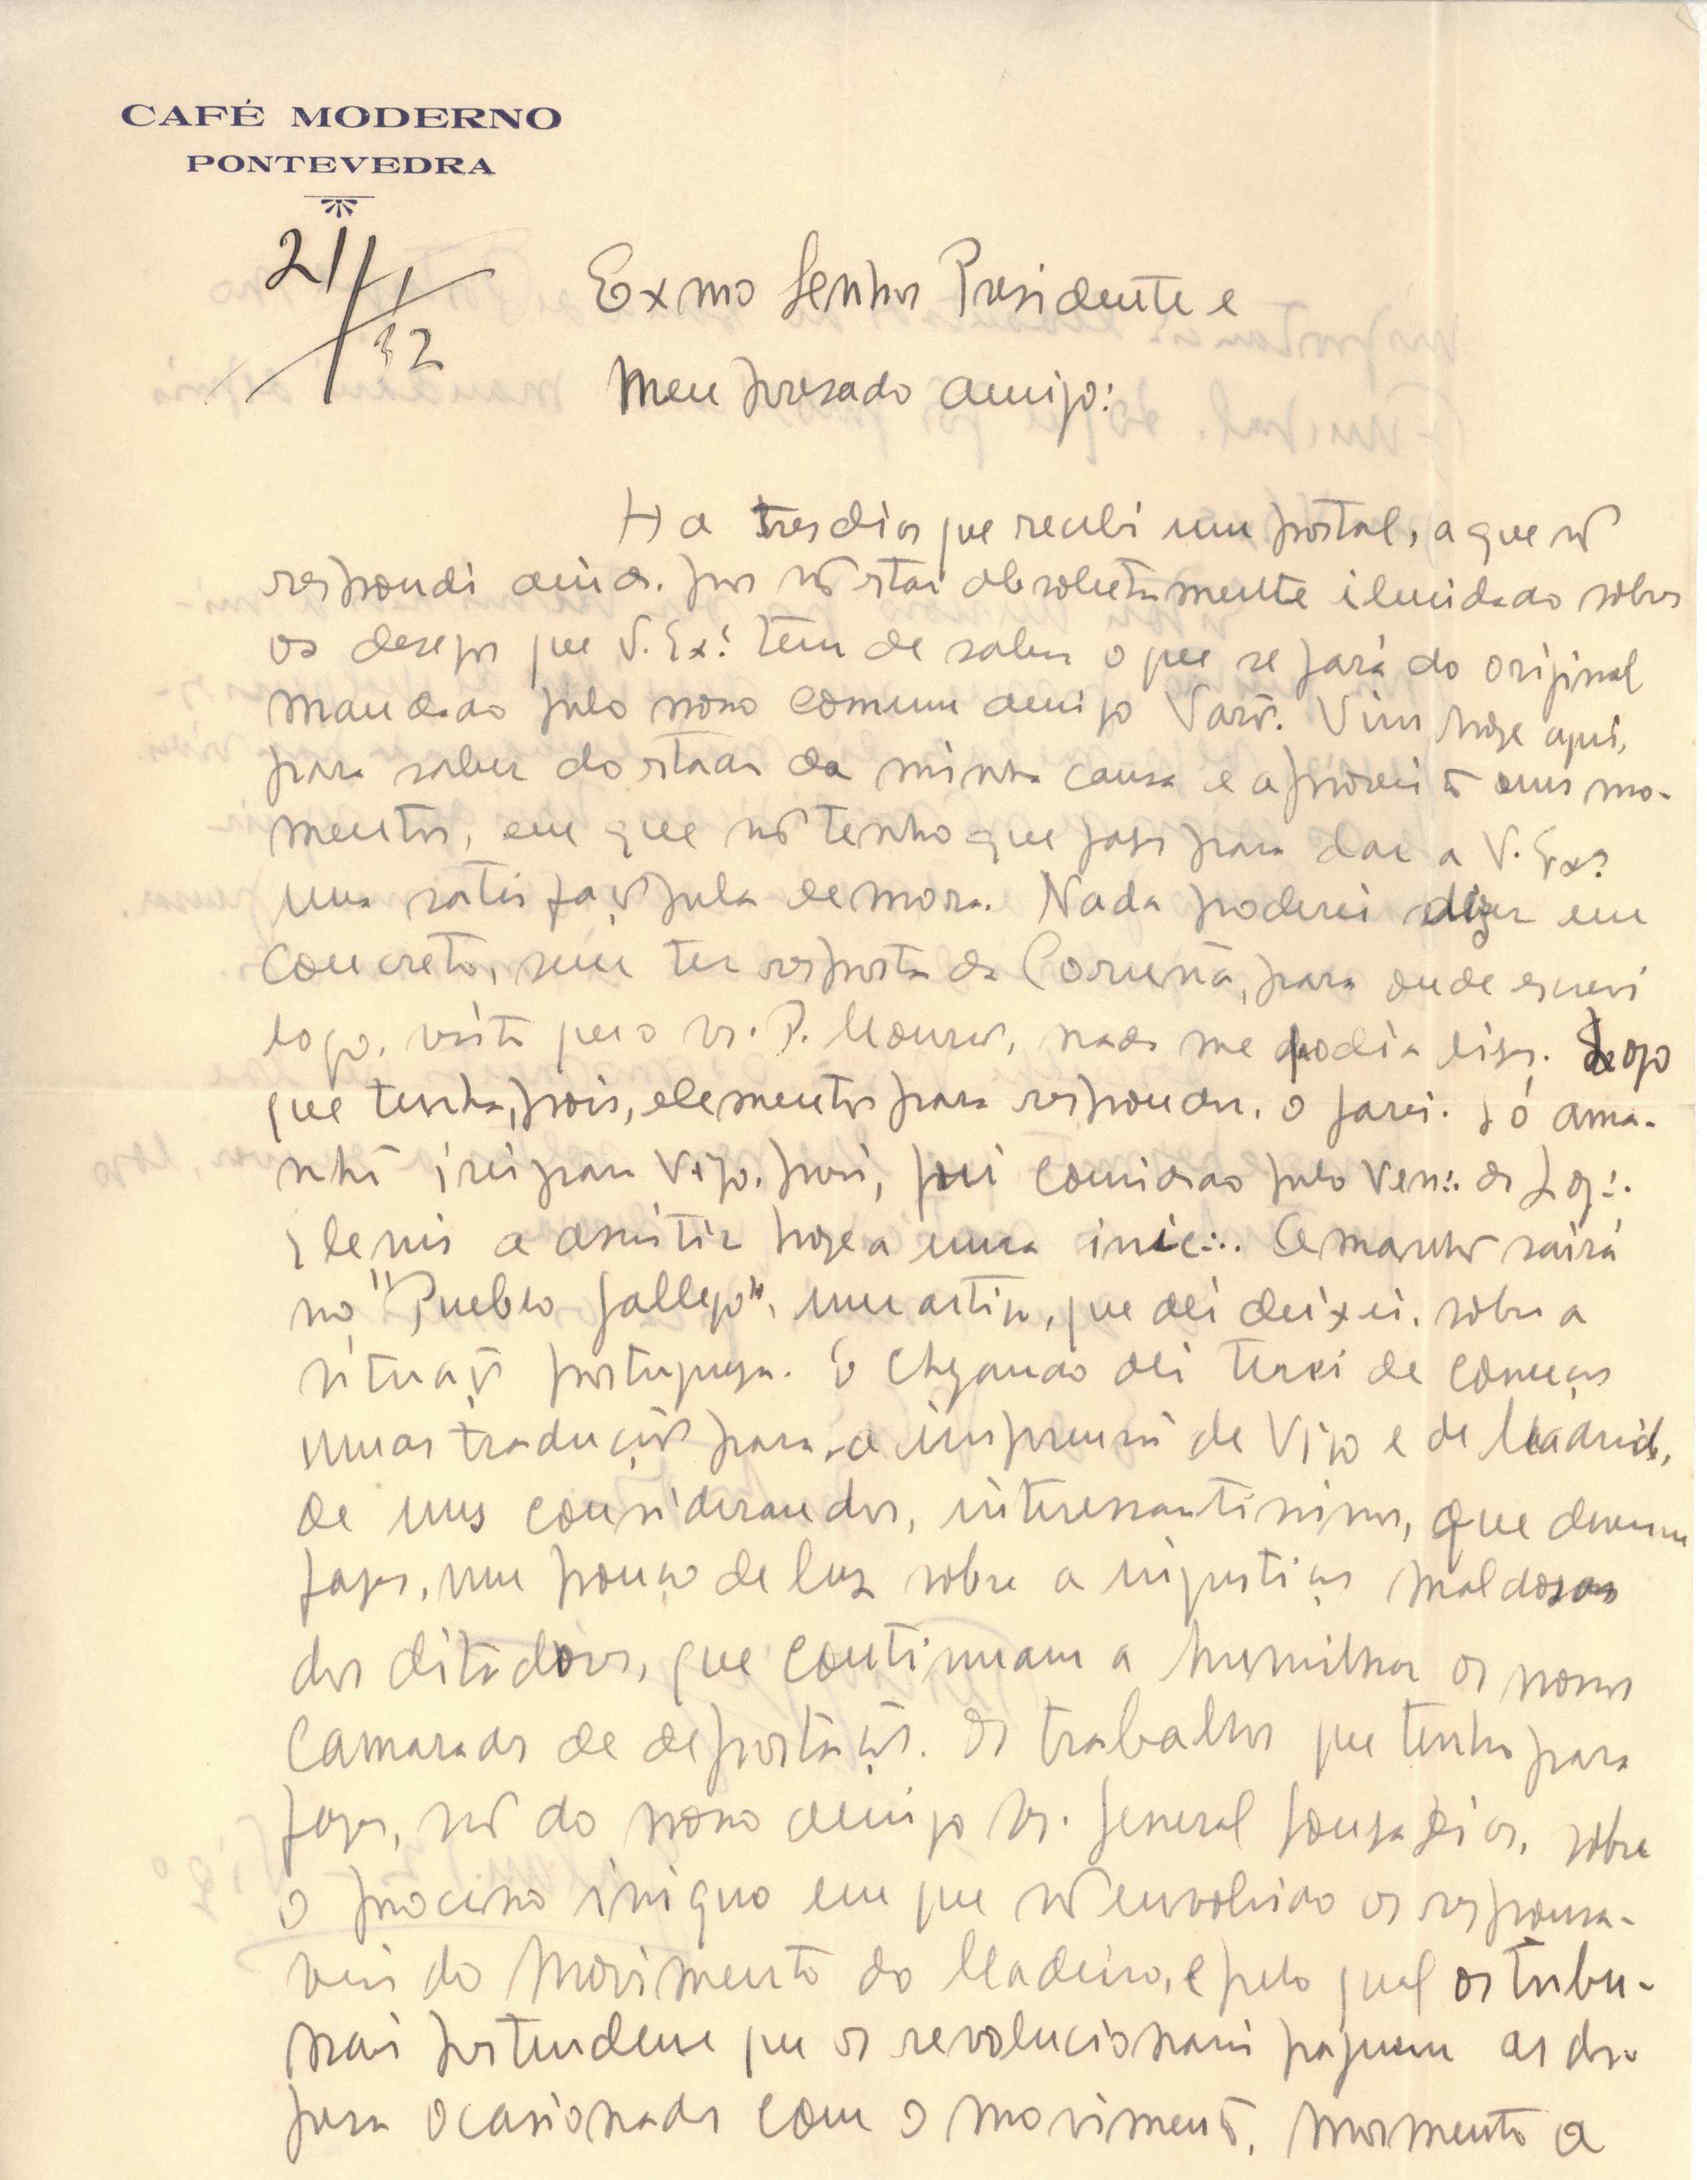 CAFÉ MODERNO
PONTEVEDRA
21/1/32
Exmo Senhor Presidente e
Meu presado amigo:
Ha tres dias que recebi um postal, a que nõ
respondi ainda. por nõ estar absolutamente elucidado sobre
os desejos que V. Ex.ª tem de saber o que se fará do original
mandado pelo nosso comum amigo Varõ. Vim hoje aqui,
para saber do estado da minha causa e aproveito uns mo-
mentos, em que nõ tenho que faser para dar a V. Ex.ª
uma satisfaçõ pela demora. Nada poderei dizer em
concreto, sem ter resposta da Coruña, para onde escrevi
logo, visto que o sr. P. Mourõ, nada me podia diser. Logo
que tenha, pois, elementos para responder, o farei. Só ama-
nhã irei para Vigo, pois, fui convidado pelo Ven∴ da Loj∴
a assistir hoje a uma inic∴. Amanhã sairá
no "Pueblo Gallego", um artigo, que ali deixei, sobre a
situaçõ portuguesa. E chegando ali terei de começar
umas traduções para a imprensa de Vigo e de Madrid,
de uns considerandos, interessantissimos, que devem
faser, um pouco de luz sobre a injustiças maldosas
dos ditadores, que continuam a humilhar os nossos
camaradas de deportaçõ. Os trabalhos que tenho para
faser, sõ do nosso amigo Sr. General Sousa Dias, sobre
o processo iniquo em que sõ envolvido os responsa-
veis do Movimento da Madeira, e pelo qual os tribu-
nais pretendem que os revolucionarios paguem as des-
pesa ocasionadas com o movimento, mormente a